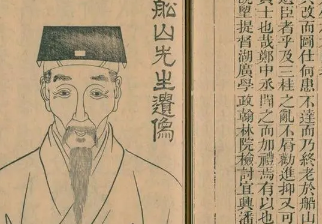 改而圖仕何患不達而乃終老於船山
臣者乎及三桂之亂不屑勸進抑又可
士也哉鄭中丞聞之而加禮焉有以也
提督湖廣學政翰林院檢討宜興潘
舩山先生遺像